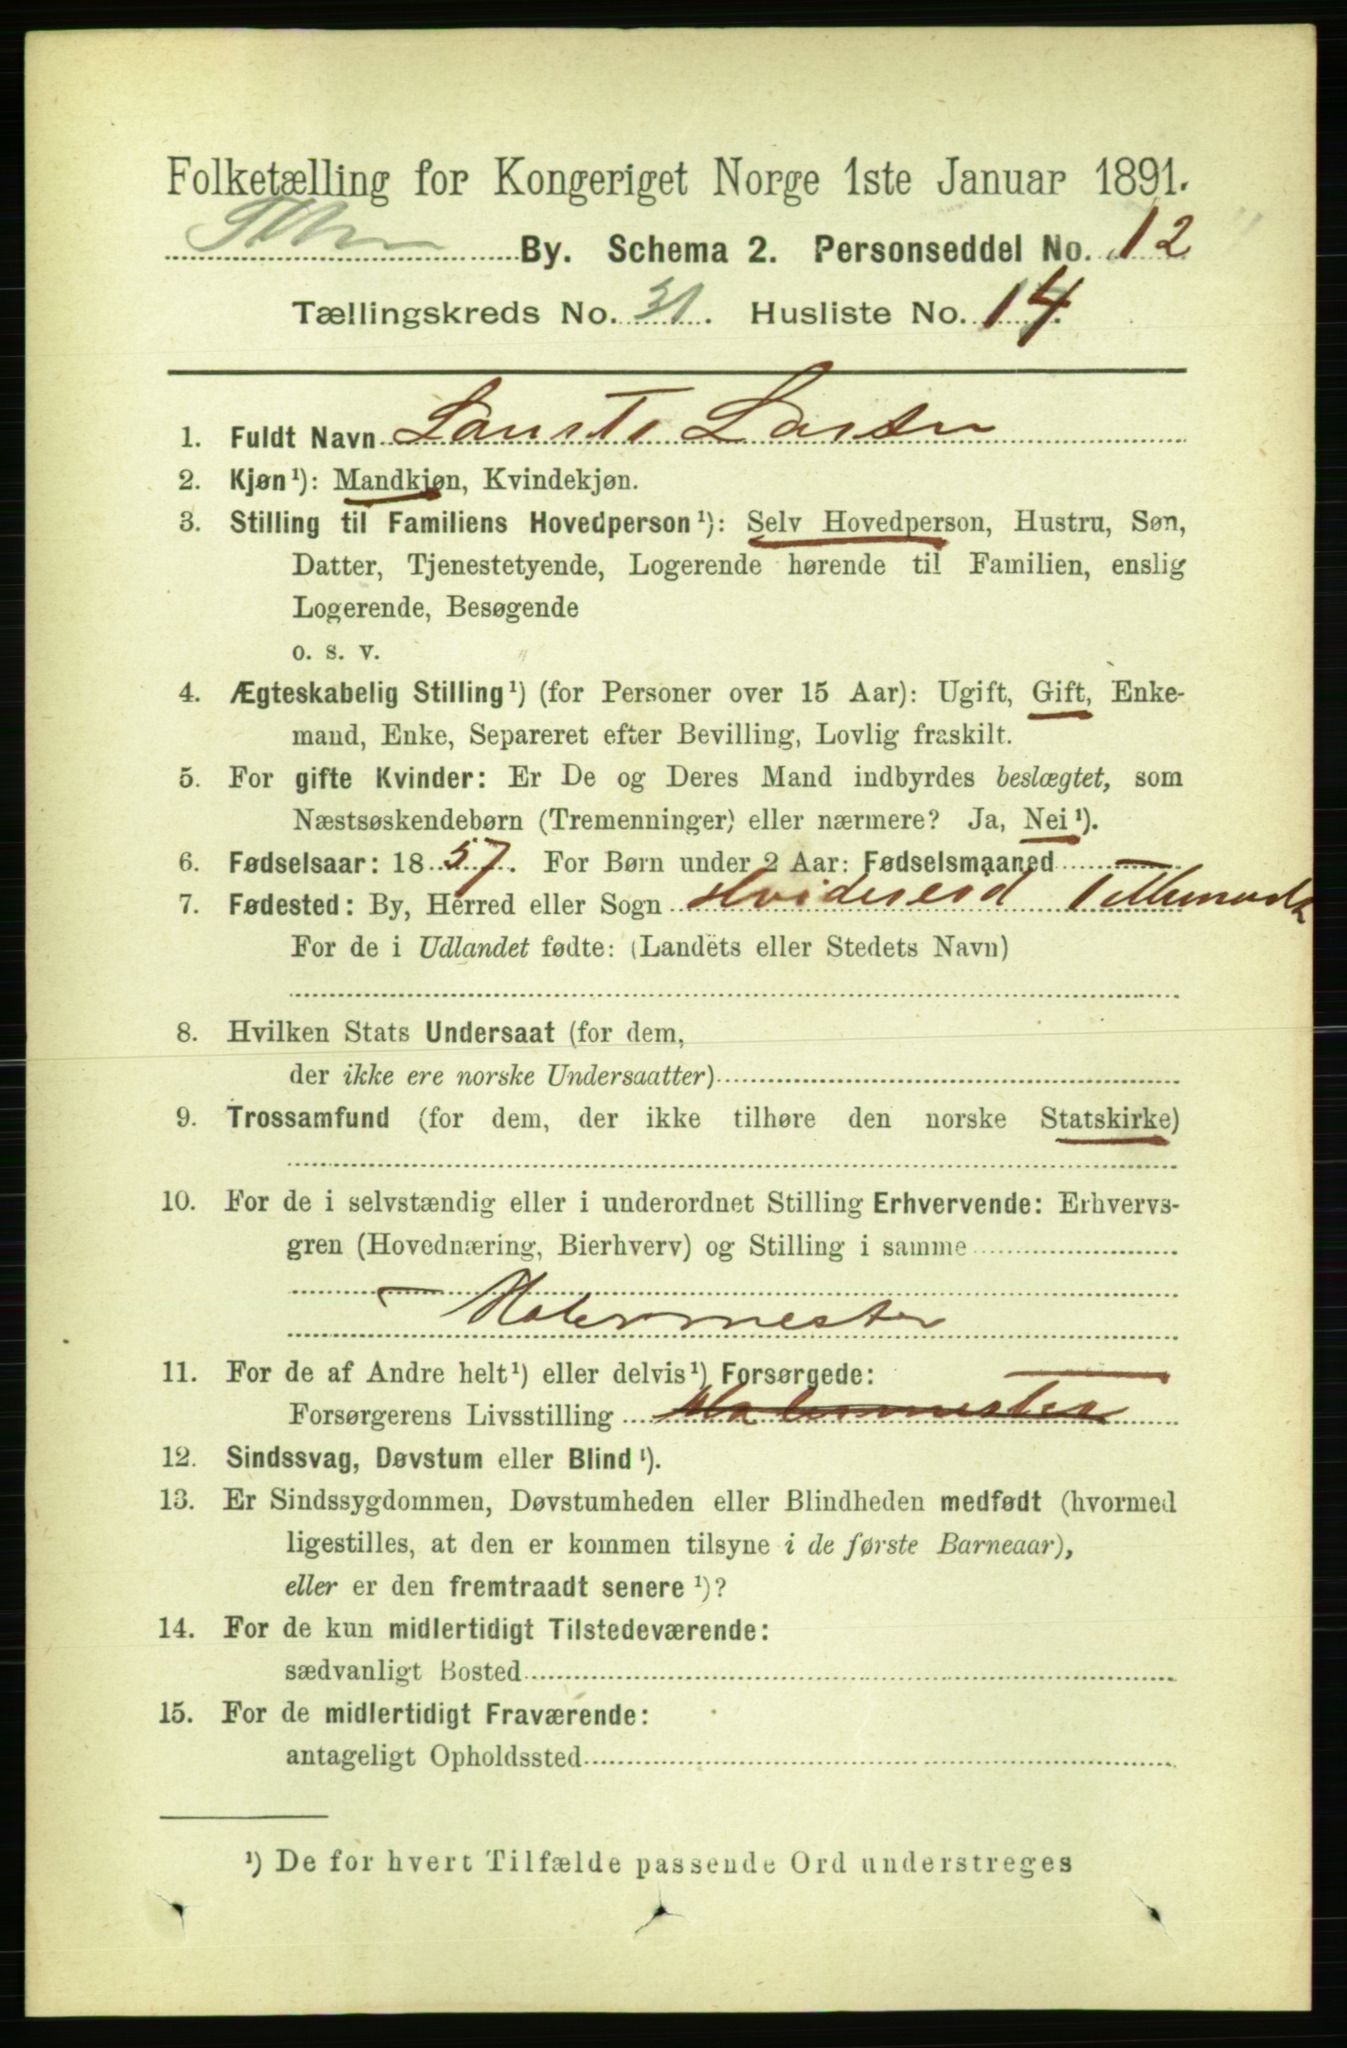 Folketælling for Kongeriget Norge 1ste Januar 1891.
By. Schema 2. Personseddel No. 12
Tællingskreds No. 31. Husliste No. 14.
1. Fuldt Navn Larsen
2. Kjøn¹): Mandkjøn, Kvindekjøn.
3. Stilling til Familiens Hovedperson¹): Selv Hovedperson, Hustru, Søn,
Datter, Tjenestetyende, Logerende hørende til Familien, enslig
Logerende, Besøgende
o. s. v.
4. Ægteskabelig Stilling¹) (for Personer over 15 Aar): Ugift, Gift, Enke-
mand, Enke, Separeret efter Bevilling, Lovlig fraskilt.
5. For gifte Kvinder: Er De og Deres Mand indbyrdes beslægtet, som
Næstsøskendebørn (Tremenninger) eller nærmere? Ja, Nei¹).
6. Fødselsaar: 1857. For Børn under 2 Aar: Fødselsmaaned
7. Fødested: By, Herred eller Sogn Hvideseid
For de i Udlandet fødte: (Landets eller Stedets Navn)
8. Hvilken Stats Undersaat (for dem,
der ikke ere norske Undersaatter)
9. Trossamfund (for dem, der ikke tilhøre den norske Statskirke)
10. For de i selvstændig eller i underordnet Stilling Erhvervende: Erhvervs-
gren (Hovednæring, Bierhverv) og Stilling i samme
Malermester
11. For de af Andre helt¹) eller delvis¹) Forsørgede:
Forsørgerens Livsstilling Malermester
12. Sindssvag, Døvstum eller Blind¹).
13. Er Sindssygdommen, Døvstumheden eller Blindheden medfødt (hvormed
ligestilles, at den er kommen tilsyne i de første Barneaar),
eller er den fremtraadt senere¹)?
14. For de kun midlertidigt Tilstedeværende:
sædvanligt Bosted
15. For de midlertidigt Fraværende:
antageligt Opholdssted
¹) De for hvert Tilfælde passende Ord understreges